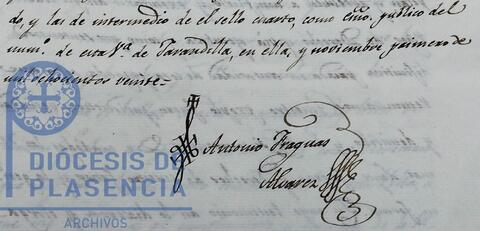 do, y las de intermedio de el sello cuarto, como esno. publico del
num.º de esta V.ª de Tarandilla, en ella, y noviembre primero de
mil ochocientos veinte=
Antonio Fraguas
Alvarez
DIÓCESIS DE
PLASENCIA
ARCHIVOS